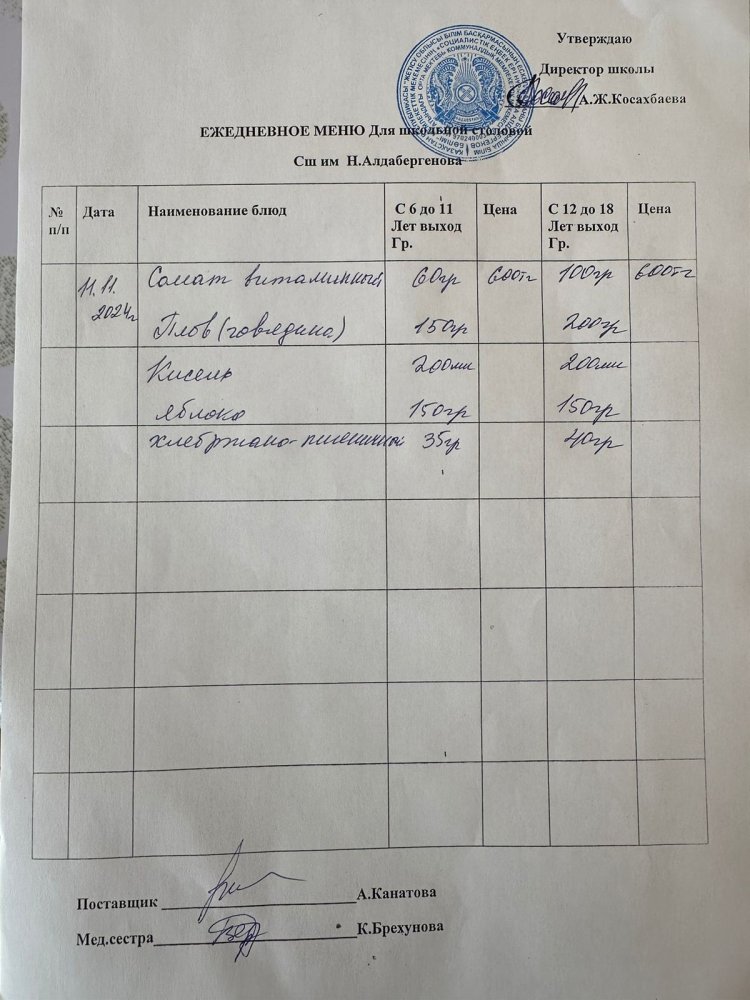 Утверждаю
Директор школы
А.Ж.Косахбаева
ЕЖЕДНЕВНОЕ МЕНЮ Для школьной столовой
Сш им Н.Алдабергенова
№ п/п Дата Наименование блюд С 6 до 11 Лет выход Гр. Цена С 12 до 18 Лет выход Гр. Цена
11.11. 2024г Салат витаминный 60гр 600тг 100гр 600тг
Плов (говядина) 150гр 200гр
Кисель 200мл 200мл
Яблоко 150гр 150гр
хлеб ржано-пшеничной 35гр 40гр
Поставщик А.Канатова
Мед.сестра К.Брехунова